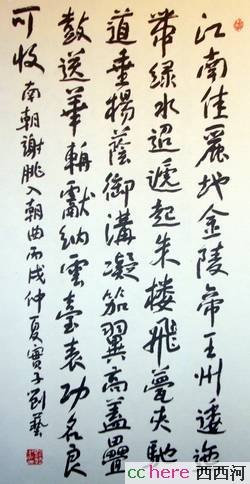 江南佳麗地金陵帝王州逶迤
帶绿水迢遞起朱楼飛甍夹馳
道垂楊蔭御溝凝笳翼高蓋疊
鼓送華輈獻納雲臺表功名良
可收 南朝謝朓入朝曲丙戌仲夏實子劉藝
cchere 西西河